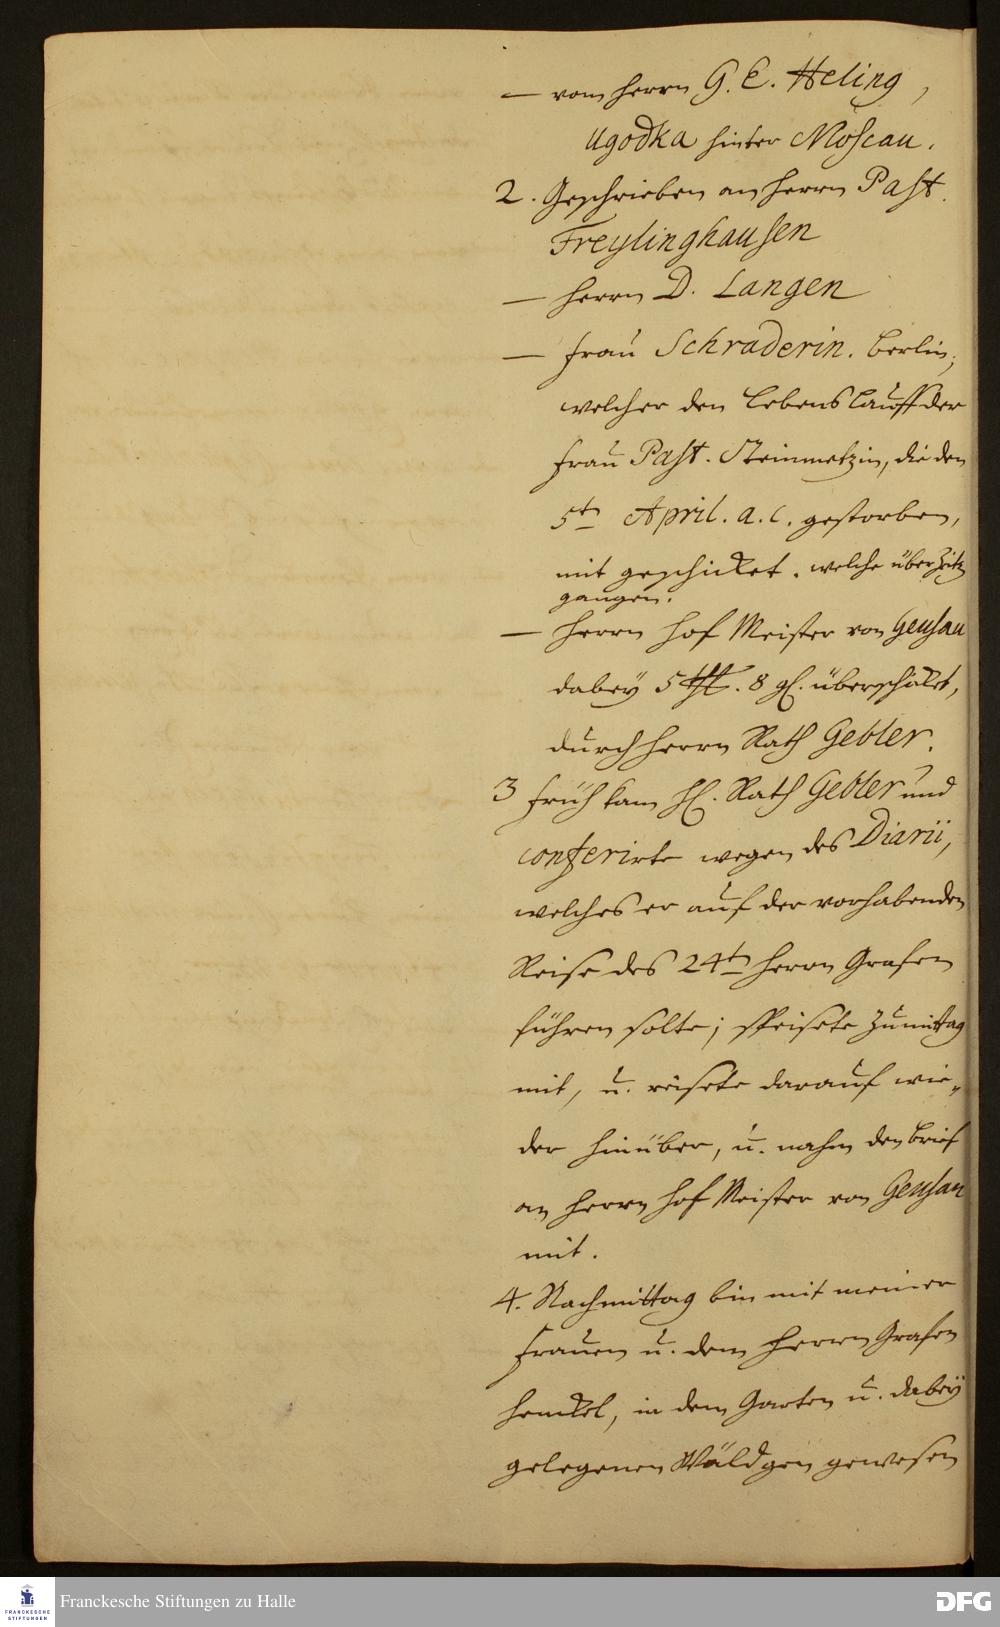 — vom Herrn G. E. Heling,
Ugodka hinter Moscau.
2. Geschrieben an Herrn Past.
Freylinghausen
— Herrn D. Langen
— Frau Schraderin. Berlin,
welcher den Lebenslauff der
Frau Past. Steinmetzin, die den
5tn April. a. c. gestorben,
mit geschicket. welche über
gangen.
— Herrn Hof Meister von Geusau
dabey 5 8 gl. überschickt,
durch Herrn Rath Gebler.
3 früh kam H. Rath Gebler und
conferirte wegen des Diarii,
welches er auf der vorhabenden
Reise des 24tn Herrn Grafen
führen solte; speisete zu mittag
mit, u. reisete darauf wie-
der hinüber, u. nahm den brief
an Herrn Hof Meister von Geusau
mit.
4. Nachmittag bin mit meiner
Frauen u. dem Herrn Grafen
Henckel, in dem Garten u. dabey
gelegenen Wäldgen gewesen
FRANCKESCHE STIFTUNGEN
Franckesche Stiftungen zu Halle
DFG